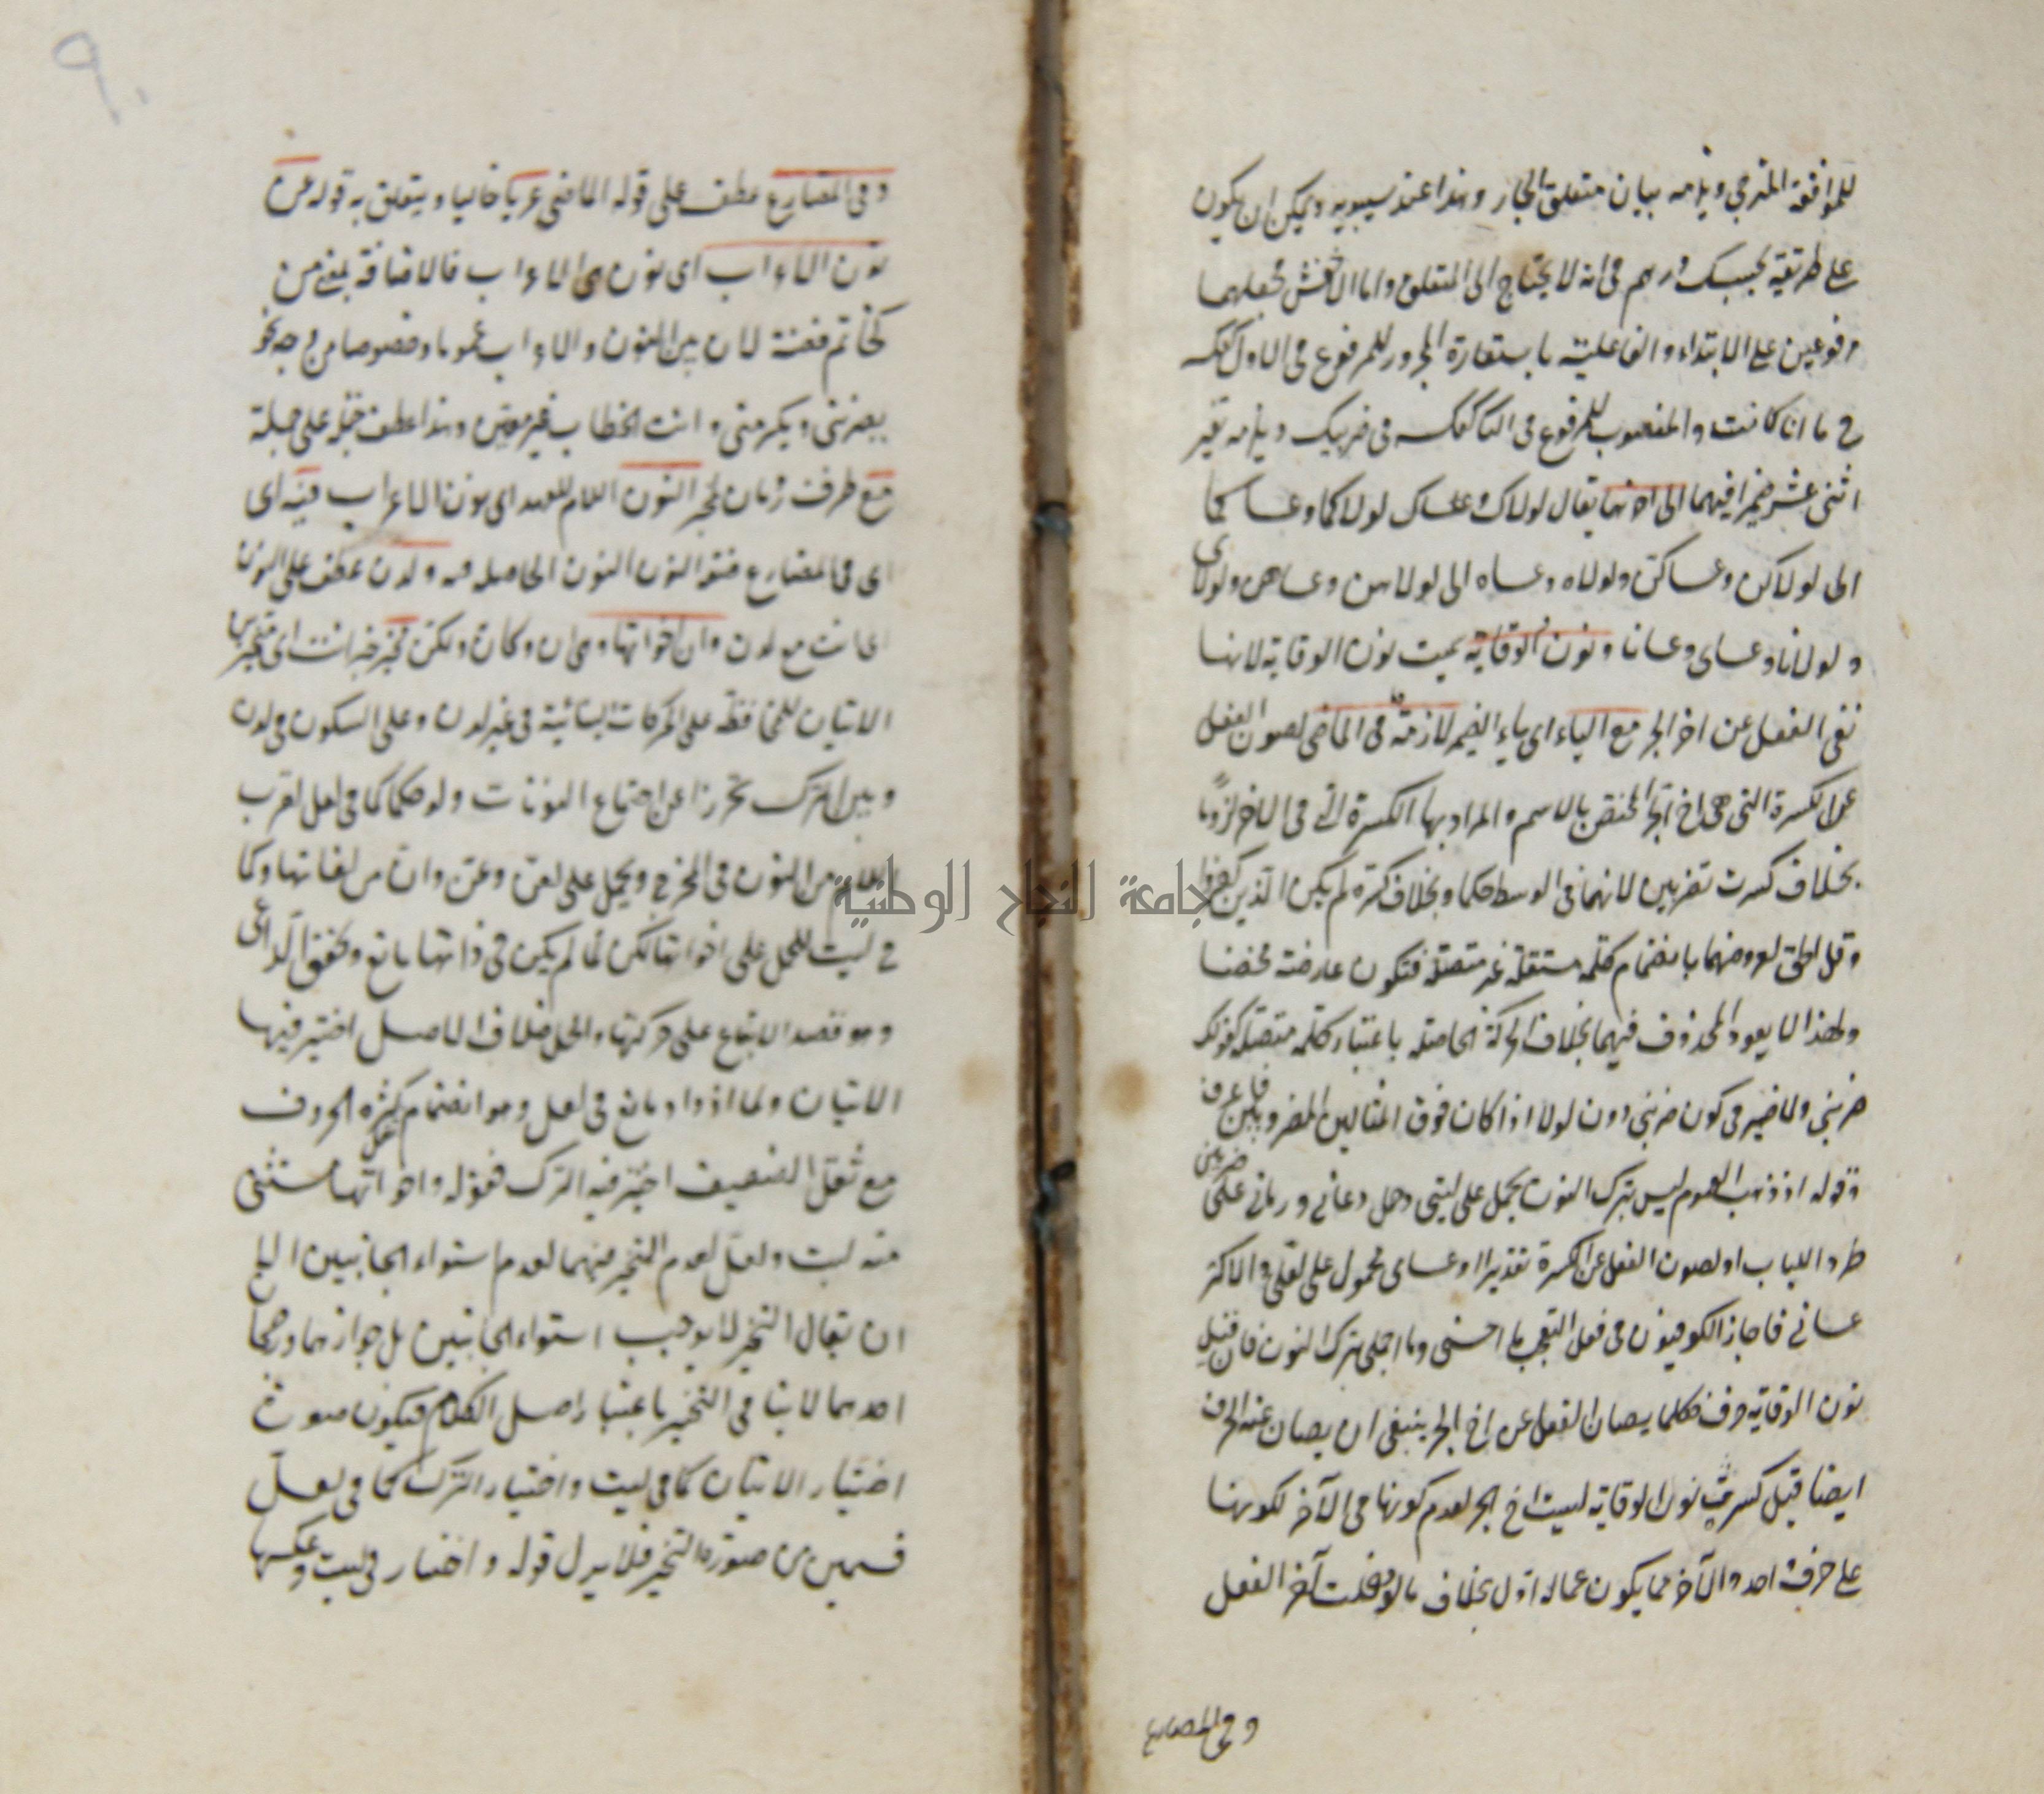 للموافقة المنرجى ويلزمه بيان متعلق الجار وهذا عند سيبويه ويمكن ان يكون
على طريقة بحسبك درهم فى انه لا يحتاج الى المتعلق واما الاخفش فجعلهما
مرفوعين على الابتداء والفاعلية باستعارة المجرور للمرفوع فى الاول كعكسه
فى ما انا كانت والمنصوب للمرفوع فى الثانى كعكسه فى ضربتك ويلزمه تغير
اثنى عشر ضميرا فيهما الى اخرها يقال لولاك وعساك لولاكما وعساكما
الى لولاكن وعساكن ولولاه وعساه الى لولاهن وعساهن ولولاى
ولولانا وعساى وعسانا ونون الوقاية سميت نون الوقاية لانها
تقى الفعل عن اخ الجر مع الياء اى ياء الضمير لازمة فى الماضى لصون الفعل
عن الكسرة التى هى اخ الجر المختص بالاسم والمراد بها الكسرة التى فى الاخر لزوما
بخلاف كسرت تضربين لانها فى الوسط حكما وبخلاف كسرة لم يكن الذين كفروا
وقل الحق لعروضهما بانضمام كلمة مستقلة غير متصلة فتكون عارضة محضا
ولهذا لا يعود المحذوف فيهما بخلاف الحركة الحاصلة باعتبار كلمة متصلة كقولك
ضربنى ولا ضير فى كون ضربنى دون لولا اذا كان فوق المثالين المضروبين فاعرف
وقوله اذ ذهب القوم ليس بترك النون يحمل على ليتى وحمل دعانى ورمانى على ضربنى
طردا للباب او لصون الفعل عن الكسرة تقديرا وعساى محمول على لعلى والاكثر
عسانى فاجاز الكوفيون فى فعل التعجب ما احسنى وما اجملى بترك النون فان قيل
نون الوقاية حرف فكما يصان الفعل عن اخ الجر ينبغى ان يصان عنه الحرف
ايضا قيل كسرة نون الوقاية ليست اخ الجر لعدم كونها فى الآخر لكونها
على حرف واحد والآخر مما يكون عماله اول بخلاف ما لو دخلت آخر الفعل
وفى المضارع
٩٠
وفى المضارع عطف على قوله الماضى عريا خاليا ويتعلق به قوله عن
نون الاعراب اى نون هى الاعراب فالاضافة بمعنى من
كخاتم فضة لان بين النون والاعراب عموما وخصوصا من وجه نحو
يضربننى ويكرمننى وانت الخطاب غير معين وهذا عطف جملة على جملة
مع ظرف زمان لمخير النون اللام للعهد اى نون الاعراب فيه اى
اى فى المضارع منه النون النون الحاصلة فيه ولدن عطف على النون
اى انت مع لدن وان اخواتها وهى ان وكان ولكن مخير خبر انت اى متخير بين
الاتيان للمحافظة على الحركات البنائية فى غير لدن وعلى السكون فى لدن
وبين الترك تحرزا عن اجتماع النونات ولو حكما كما فى لعل لقرب
اللام من النون فى المخرج ويحمل على لعن وعن وان من لغاتها وكما
فى ليت للحمل على اخواتها لكن لما لم يكن فى ذاتها مانع وتحقق الداعى
وهو قصد الابقاء على حركتها والحمل خلاف الاصل اختير فيها
الاتيان ولما ازداد مانع فى لعل وهو انضمام كثرة الحروف
مع ثقل التضعيف اختير فيه الترك فقوله واخواتها مستثنى
منه ليت ولعل لعدم التخير منهما لعدم استواء الجانبين الا
ان يقال التخير لا يوجب استواء الجانبين بل جوازهما ورجحان
احدهما لا ينافى التخير باعتبار اصل الكلام فيكون صورة
اختيار الاتيان كما فى ليت واختيار الترك كما فى لعل
قسمين من صورة التخير فلا يرد قوله واختار فى ليت وعكسها
جامعة النجاح الوطنية